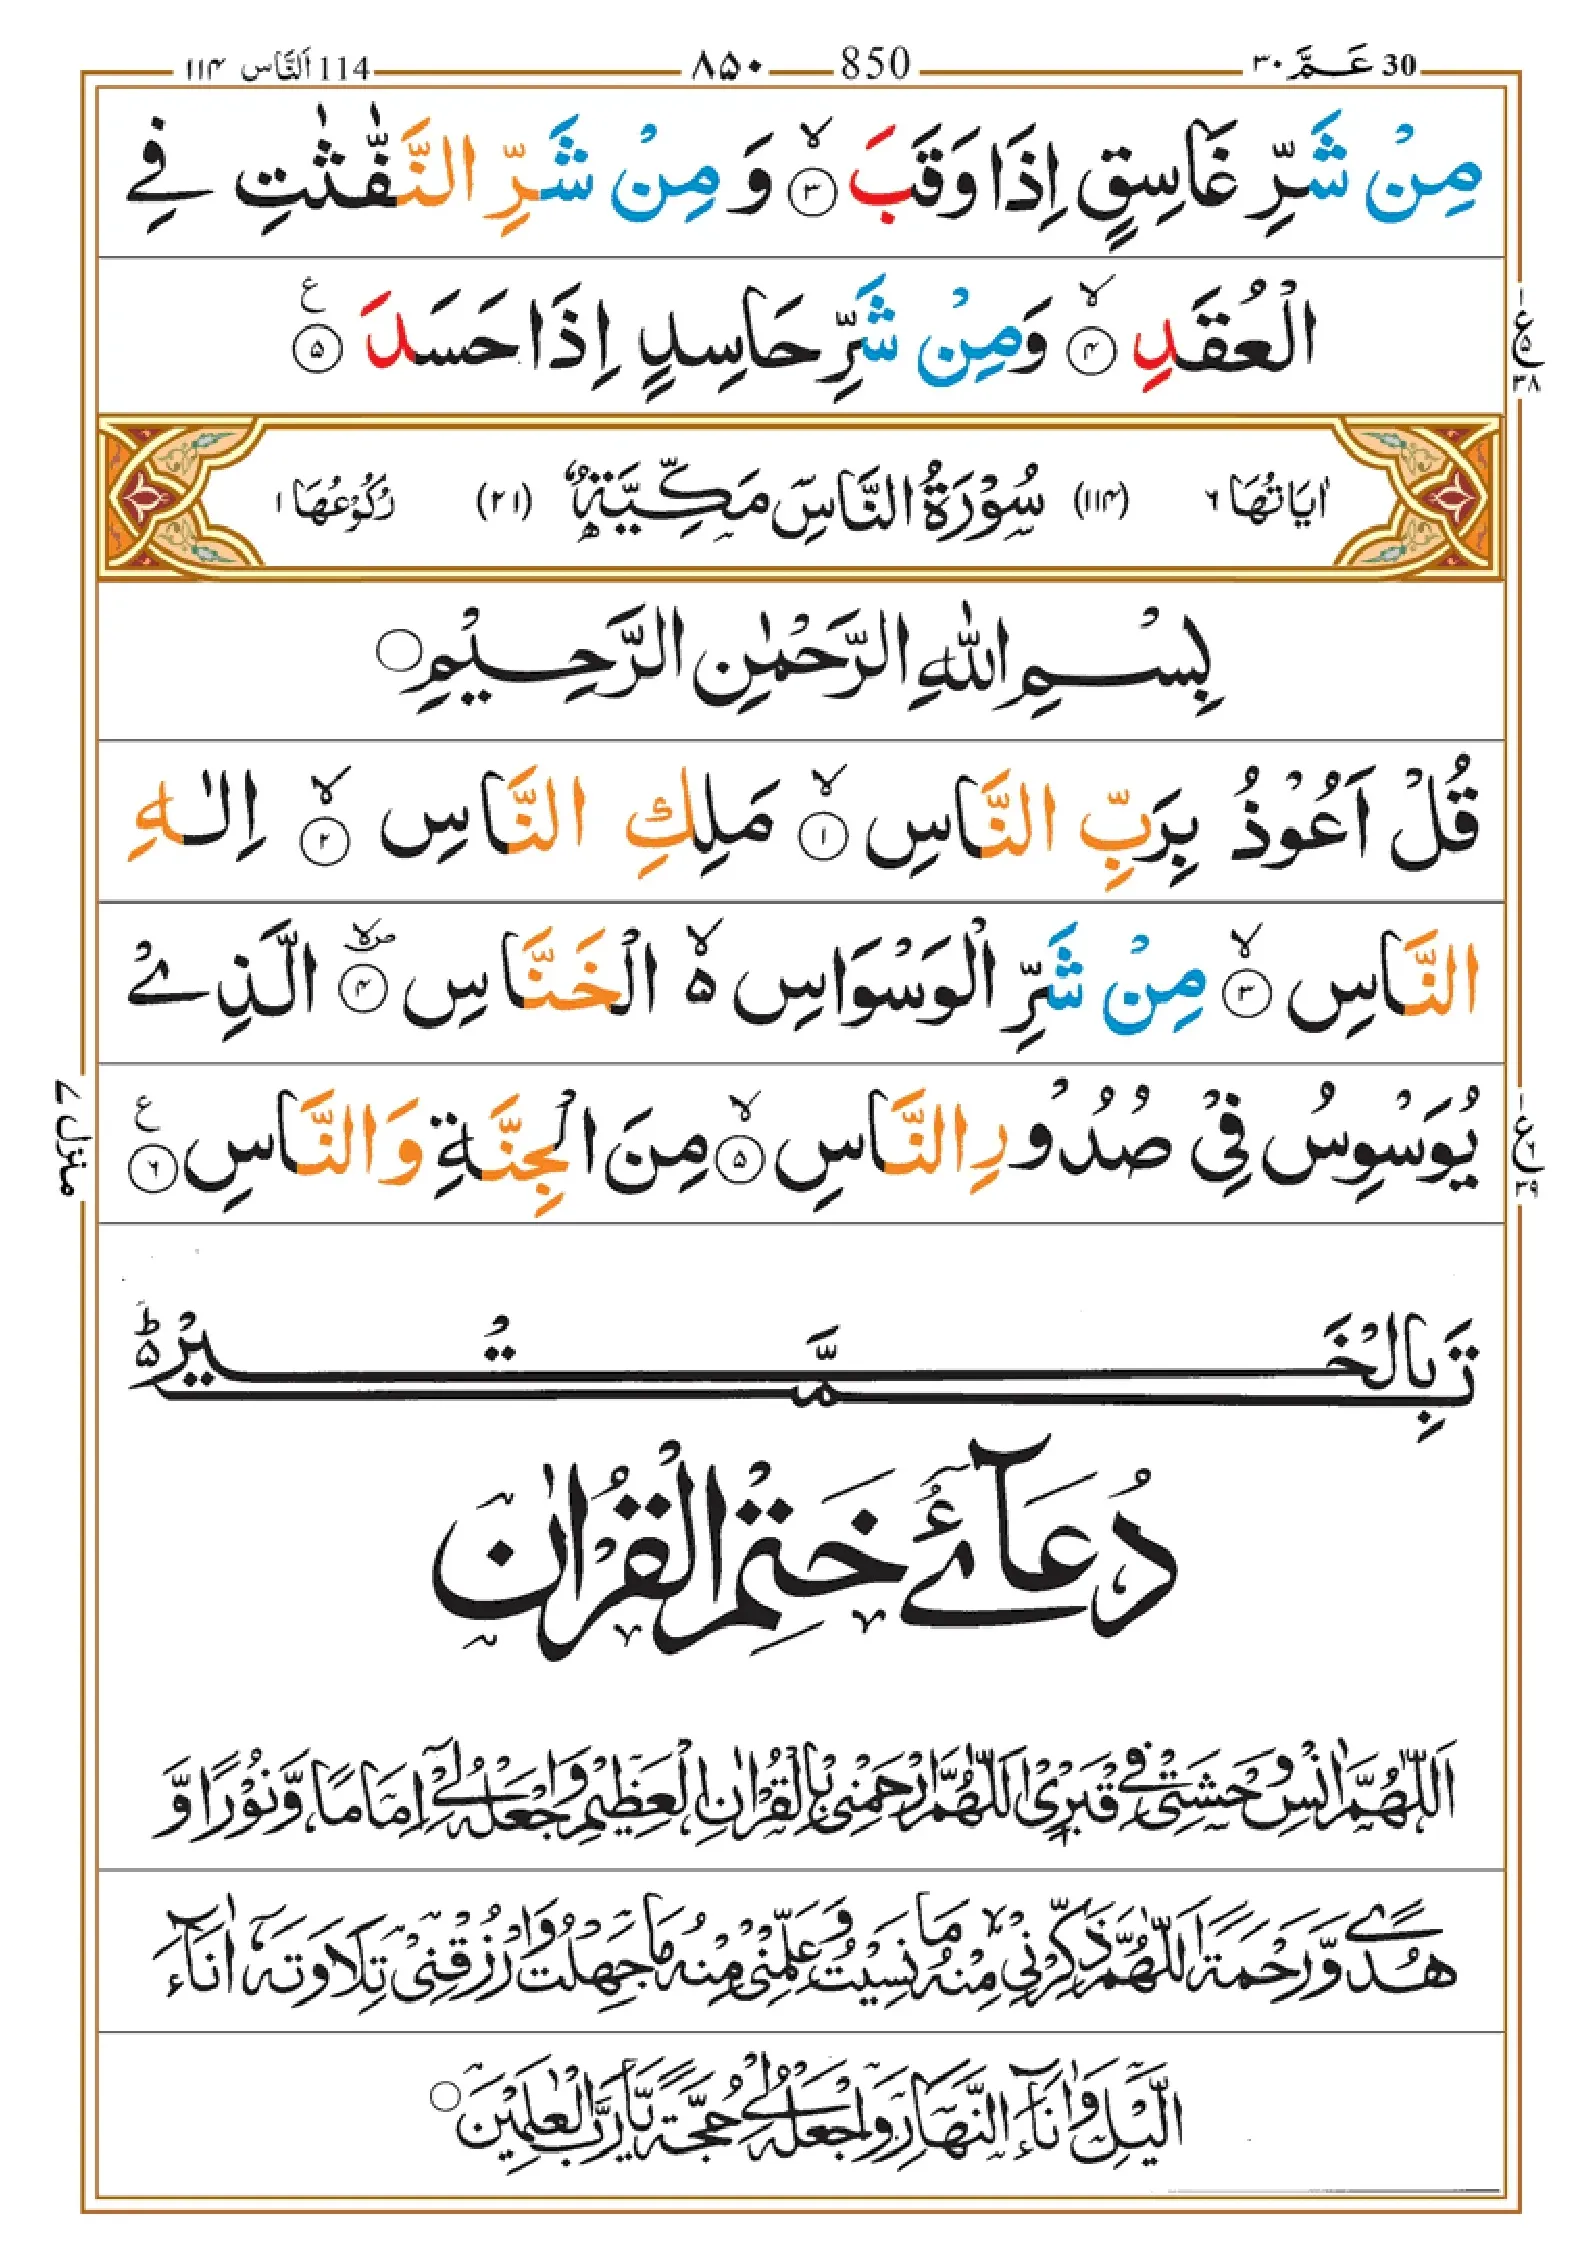 30 عَــمَّ ٣٠
850 ٨٥٠
114 اَلنَّاس ١١٤
مِنْ شَرِّ غَاسِقٍ اِذَا وَقَبَ ۙ﴿٣﴾ وَ مِنْ شَرِّ النَّفّٰثٰتِ فِی
الْعُقَدِ ۙ﴿۴﴾ وَمِنْ شَرِّ حَاسِدٍ اِذَا حَسَدَ ﴿۵﴾ ع
ع ۵ ٣٨
اٰيَاتُهَا ٦ (١١۴) سُوْرَةُ النَّاسِ مَكِّيَّةٌ (٢١) رُكُوْعُهَا ١
بِسْــمِ اللّٰهِ الرَّحْمٰنِ الرَّحِــيْمِ ○
قُلْ اَعُوْذُ بِرَبِّ النَّاسِ ۙ﴿١﴾ مَلِكِ النَّاسِ ۙ﴿٢﴾ اِلٰــهِ
النَّاسِ ۙ﴿٣﴾ مِنْ شَرِّ الْوَسْوَاسِ ۵ۙ الْخَنَّاسِ ۪ۙ﴿۴﴾ الَّذِیْ
يُوَسْوِسُ فِیْ صُدُوْرِ النَّاسِ ۙ﴿۵﴾ مِنَ الْجِنَّةِ وَالنَّاسِ ﴿٦﴾ ع
ع ٦ ٣٩
منزل ٧
تَمَّتْ بِالْخَــيْرِ ط ۵
دُعَآئے خَتْمِ الْقُرْاٰن
اَللّٰهُمَّ اٰنِسْ وَحْشَتِیْ فِیْ قَبْرِیْ اَللّٰهُمَّ ارْحَمْنِیْ بِالْقُرْاٰنِ الْعَظِيْمِ وَاجْعَلْهُ لِیْٓ اِمَامًا وَّنُوْرًا وَّ
هُدًی وَّرَحْمَةً اَللّٰهُمَّ ذَكِّرْنِیْ مِنْهُ مَا نَسِيْتُ وَعَلِّمْنِیْ مِنْهُ مَا جَهِلْتُ وَارْزُقْنِیْ تِلَاوَتَهٗٓ اٰنَآءَ
الَّيْلِ وَاٰنَآءَ النَّهَارِ وَاجْعَلْهُ لِیْ حُجَّةً يَّا رَبَّ الْعٰلَمِيْنَ ○